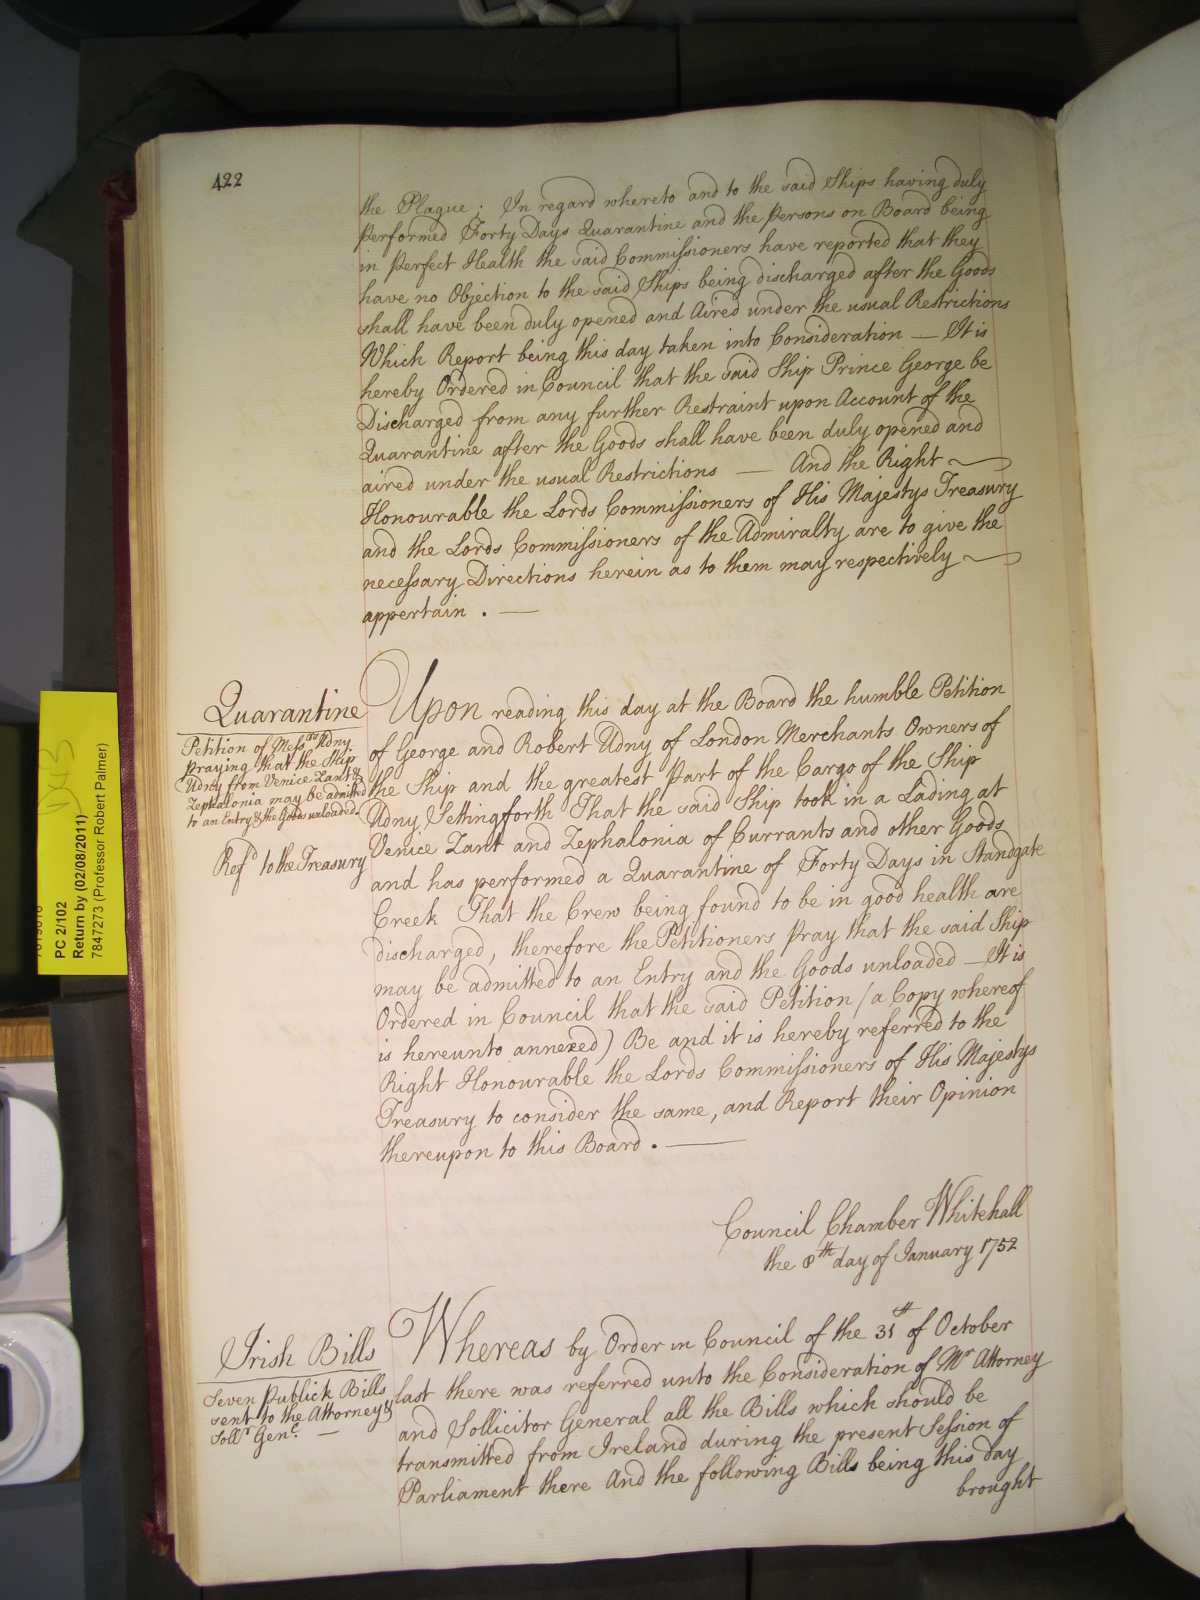 422
the Plague; In regard whereto and to the said Ships having duly
performed Forty Days Quarantine and the Persons on Board being
in perfect Health the said Commissioners have reported that they
have no Objection to the said Ships being discharged after the Goods
shall have been duly opened and Aired under the usual Restrictions
Which Report being this day taken into Consideration — It is
hereby Ordered in Council that the said Ship Prince George be
Discharged from any further Restraint upon Account of the
Quarantine after the Goods shall have been duly opened and
aired under the usual Restrictions — And the Right
Honourable the Lords Commissioners of His Majestys Treasury
and the Lords Commissioners of the Admiralty are to give the
necessary Directions herein as to them may respectively
appertain. —
Quarantine
Petition of Messrs Udny
praying that the Ship
Udny from Venice Zant &
Zephalonia may be admitted
to an Entry & the Goods unloaded.
Refd to the Treasury
Upon reading this day at the Board the humble Petition
of George and Robert Udny of London Merchants Owners of
the Ship and the greatest Part of the Cargo of the Ship
Udny Settingforth That the said Ship took in a Lading at
Venice Zant and Zephalonia of Currants and other Goods
and has performed a Quarantine of Forty Days in Standgate
Creek That the Crew being found to be in good health are
discharged, therefore the Petitioners Pray that the said Ship
may be admitted to an Entry and the Goods unloaded — It is
Ordered in Council that the said Petition (a Copy whereof
is hereunto annexed) Be and it is hereby referred to the
Right Honourable the Lords Commissioners of His Majestys
Treasury to consider the same, and Report their Opinion
thereupon to this Board. —
Council Chamber Whitehall
the 8th day of January 1752
Irish Bills
Seven Publick Bills
sent to the Attorney &
Sollr Genl. —
Whereas by Order in Council of the 31st of October
last there was referred unto the Consideration of Mr Attorney
and Sollicitor General all the Bills which should be
transmitted from Ireland during the present Session of
Parliament there And the following Bills being this day
brought
PC 2/102
Return by (02/08/2011)
7847273 (Professor Robert Palmer)